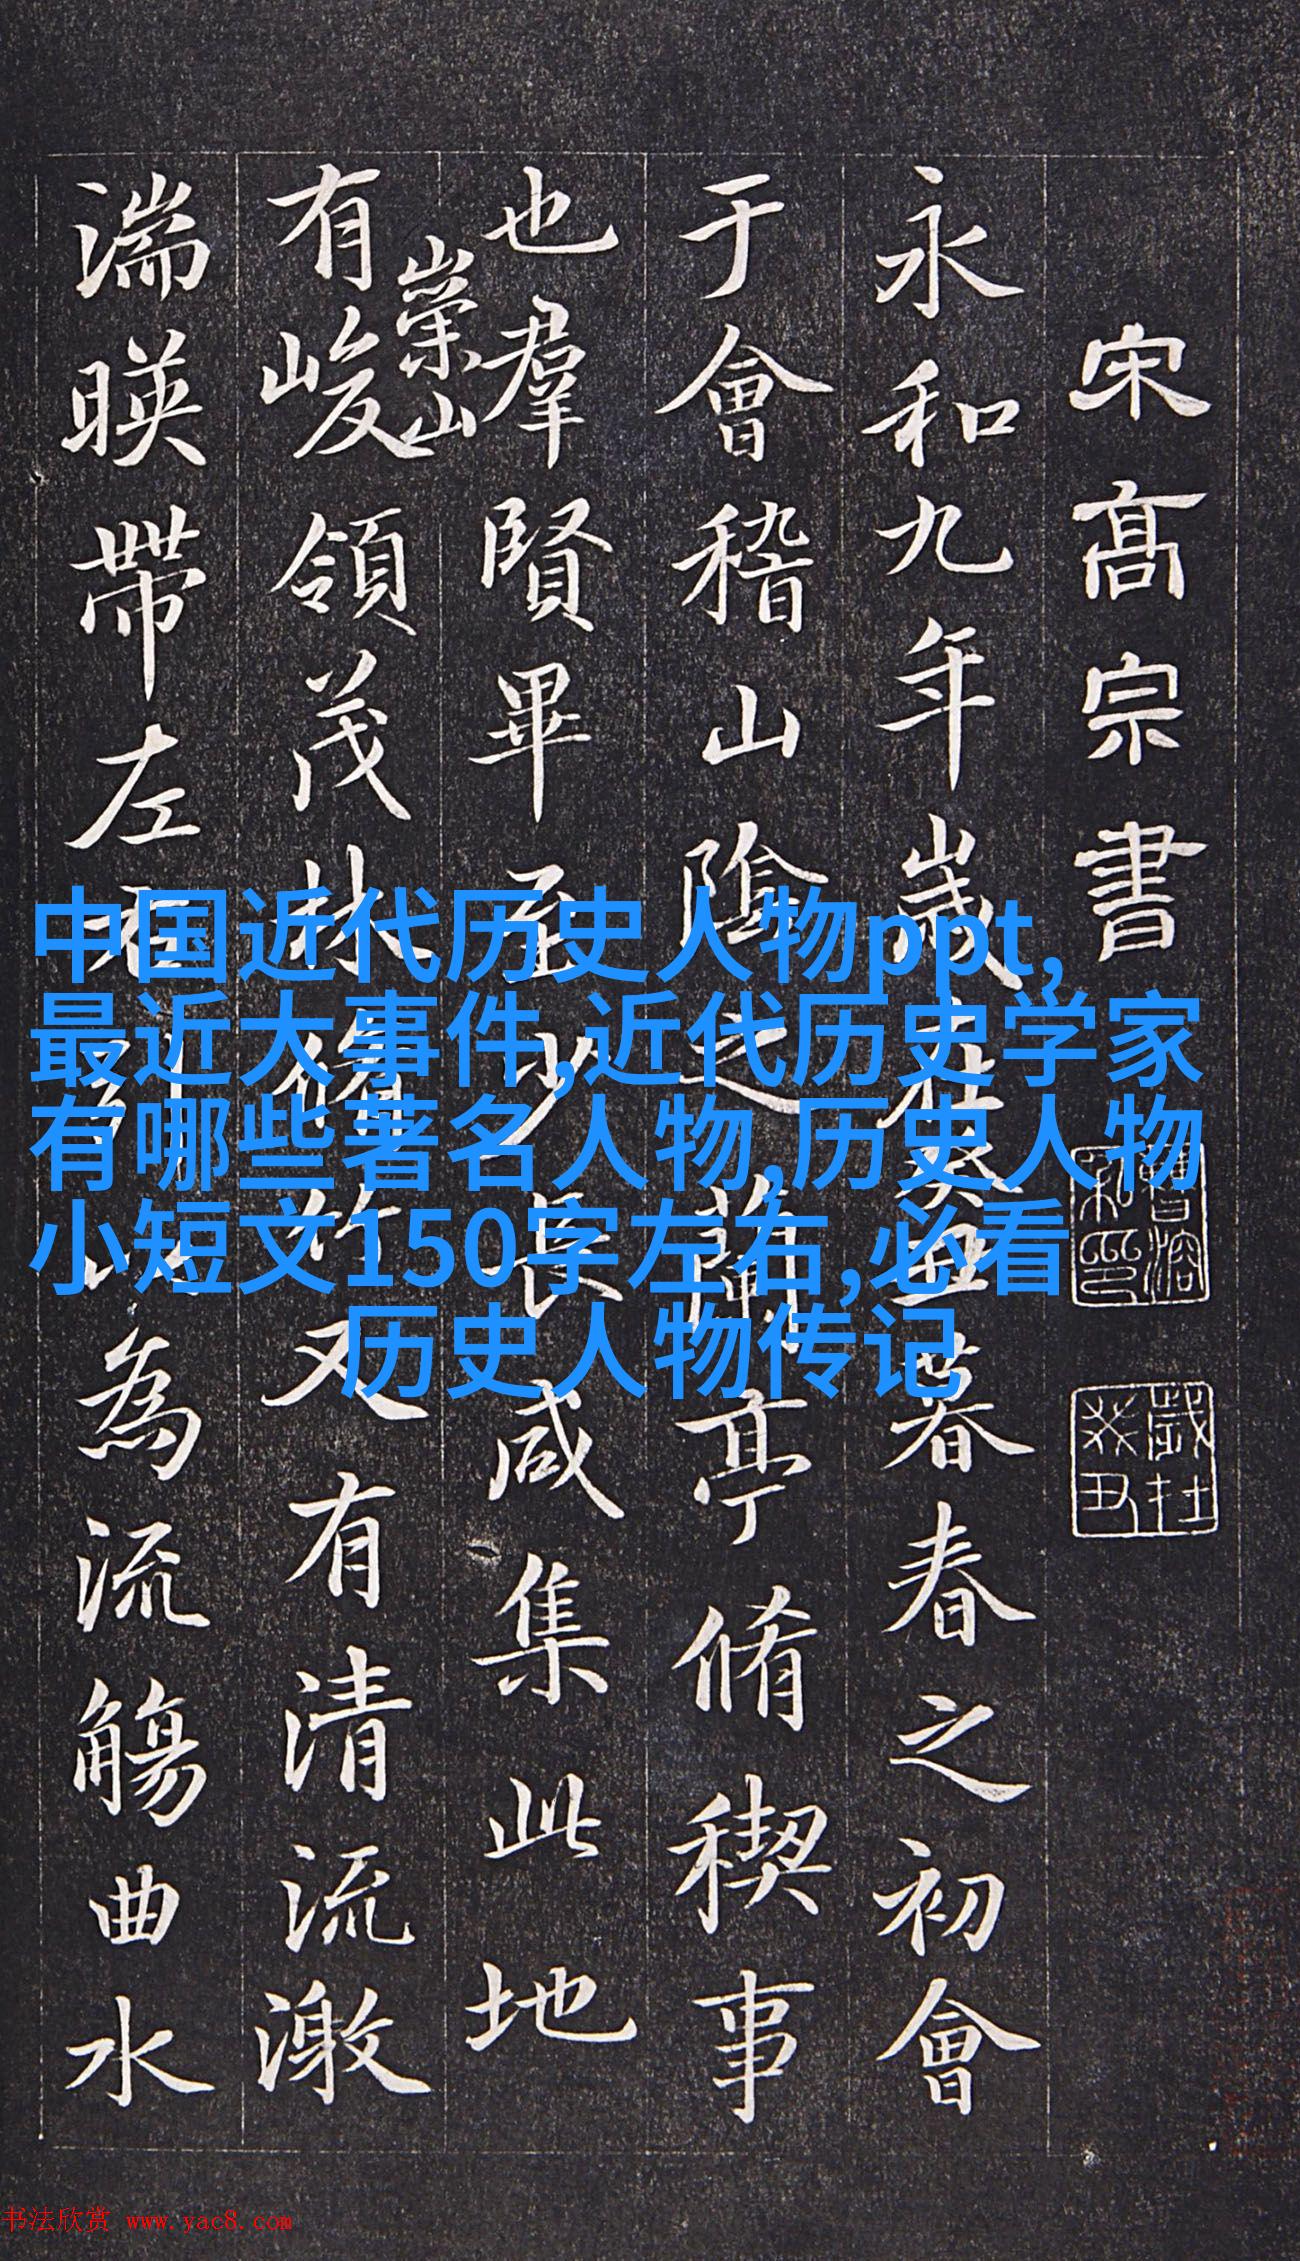 宋髙宗書
永和九年歲在癸丑暮春之初會
于會稽山陰之蘭亭脩稧事
也羣賢畢至少長咸集此地
崇山
有峻領茂林脩竹又有清流激
湍暎帶左右引以為流觴曲水
中国近代历史人物ppt,
最近大事件,近代历史学家
有哪些著名人物,历史人物
小短文150字左右,必看
历史人物传记
书法欣赏 www.yac8.com